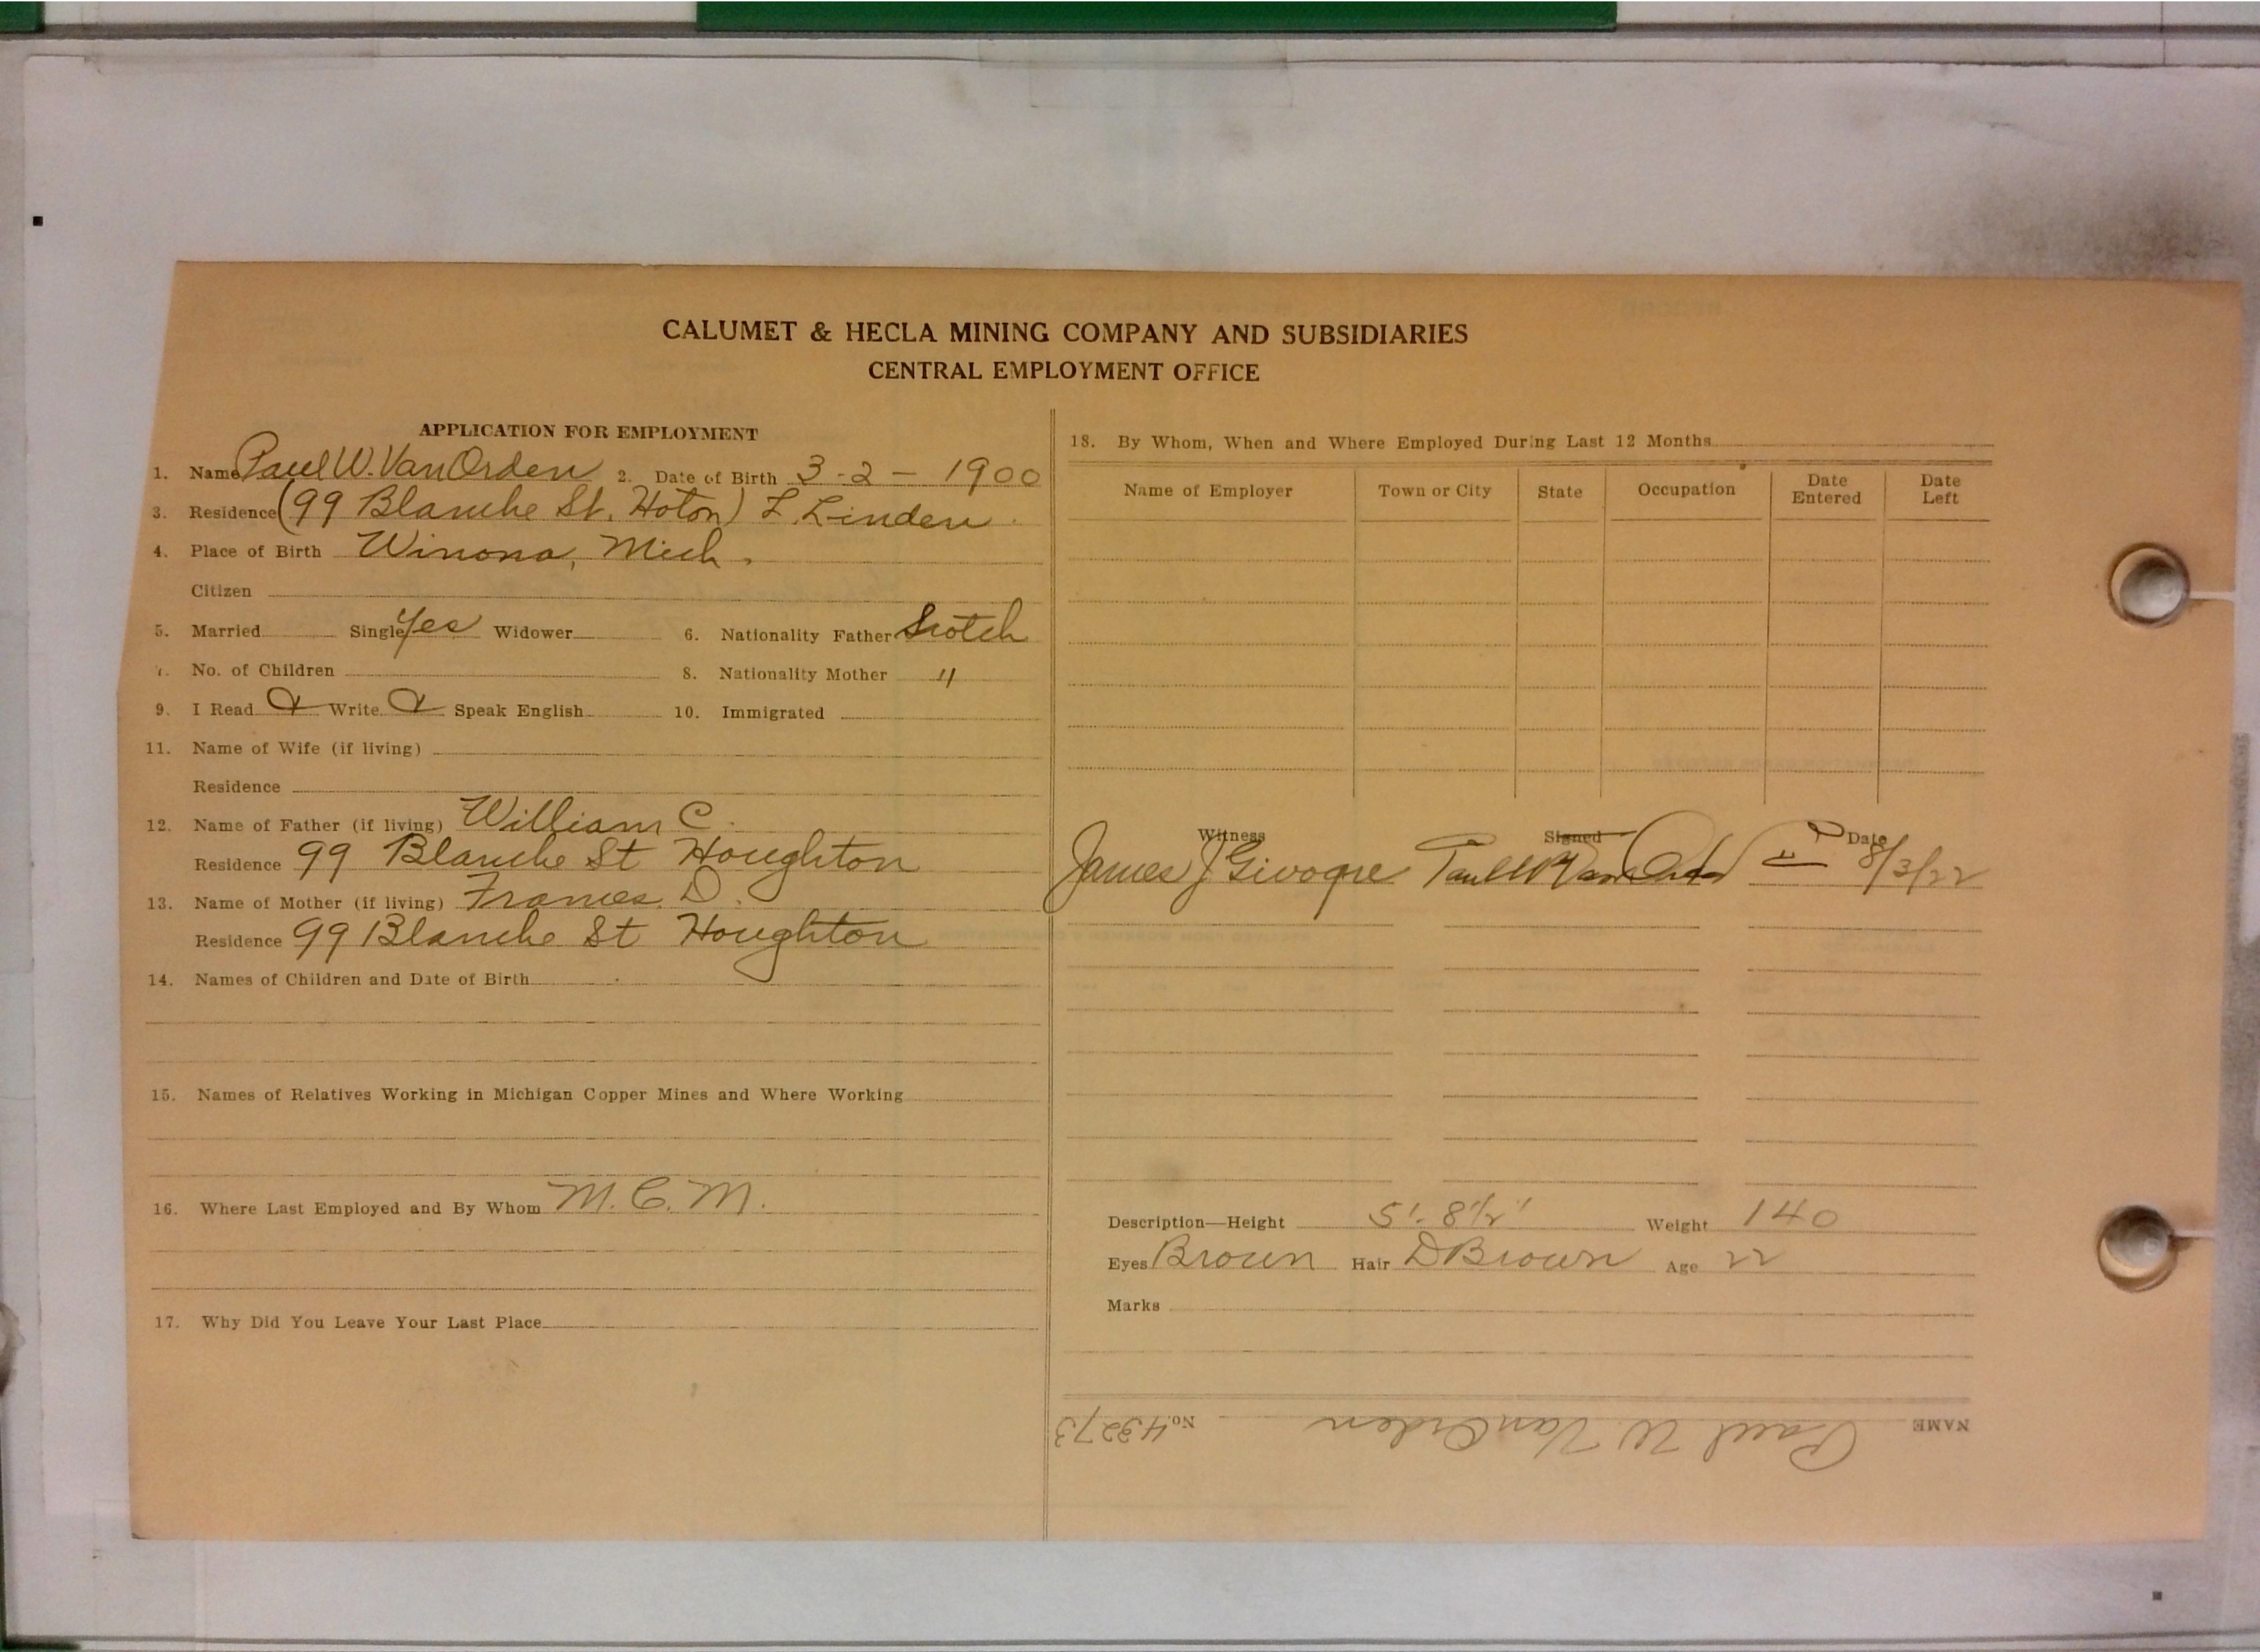 CALUMET & HECLA MINING COMPANY AND SUBSIDIARIES
CENTRAL EMPLOYMENT OFFICE
APPLICATION FOR EMPLOYMENT
1. Name Paul W. Van Orden 2. Date of Birth 3-2-1900
3. Residence (99 Blanche St. Hoton) L. Linden
4. Place of Birth Winona, Mich.
Citizen
5. Married Single Yes Widower 6. Nationality Father Scotch
No. of Children 8. Nationality Mother "
9. I Read & Write & Speak English 10. Immigrated
11. Name of Wife (if living)
Residence
12. Name of Father (if living) William C.
Residence 99 Blanche St Houghton
13. Name of Mother (if living) Frances D.
Residence 99 Blanche St Houghton
14. Names of Children and Date of Birth
15. Names of Relatives Working in Michigan Copper Mines and Where Working
16. Where Last Employed and By Whom M.C.M.
17. Why Did You Leave Your Last Place
18. By Whom, When and Where Employed During Last 12 Months
Name of Employer Town or City State Occupation Date Entered Date Left
Witness Signed Date
James J Paul W Van Orden 8/3/22
Description—Height 5'. 8 1/2" Weight 140
Eyes Brown Hair D Brown Age 22
Marks
NAME Paul W. Van Orden No. 43273